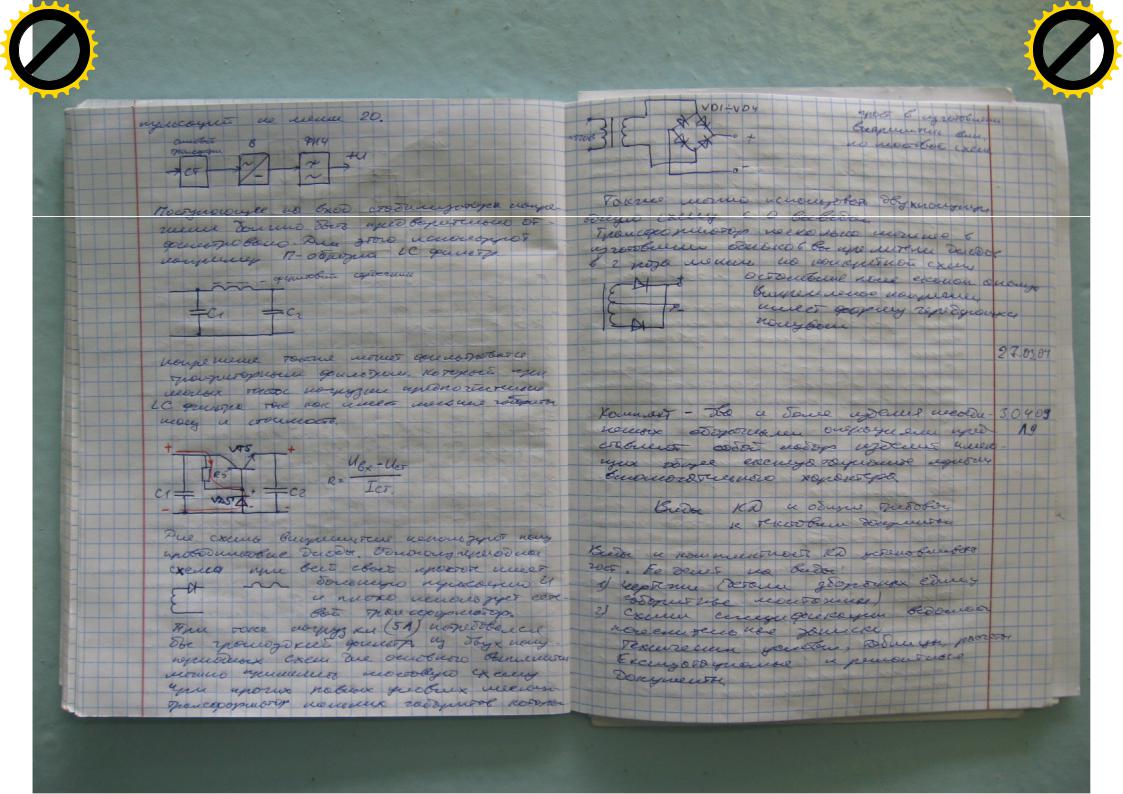 пульсаций не менее 20.
силовой трансформ. В ФНЧ
СТ +U
Поступающее на вход стабилизатора напря-
жение должно быть предварительно от
фильтровано. Для этого используют
например П-образный LC фильтр
- дросселем
C1 C2
напряжение также может фильтроваться
транзисторным фильтром. который при
малых токах нагрузки предпочтительнее
LC фильтра так как имеет меньшие габариты
массу и стоимость.
+ VT5 +
R5 C1 VD5 + C2
- -
R= Uвх-Uст / Iст.
Для схемы выпрямителя используют полу
проводниковые диоды. Однополупериодная
схема при всей своей простоте имеет
большую пульсацию U
и плохо использует сило-
вой трансформатор.
При токе нагрузки (5А) потребовался
бы громоздкий фильтр из двух полу
периодных схем для основного выпрямителя
можно применить мостовую схему
при прочих равных условиях
трансформатор меньших габаритов
VD1-VD4
+
-
прост в изготовлении
по мостовой схеме
Также можно использовать двухполупери
одную схему с
Трансформатор несколько сложнее в
изготовлении однако в выпрямителе диодов
в 2 раза меньше
+
-
Выпрямленное напряжение
имеет форму чередующихся
полуволн
27.03.09
Комплект - два и более изделия несоеди- 30.4.09
ненных сборочными операциями пред- Л9
ставляет собой набор изделий имею-
щих общее эксплуатационное назначение
вспомогательного характера
Виды КД и общие требования
к текстовым документам
Виды и комплектность КД устанавливает
гост. Её делят на виды:
1) чертежи (детали сборочный общий
габаритные монтажные)
2) Схемы спецификации ведомости
пояснительные записки
Технические условия, таблицы расчёты
Эксплуатационные и ремонтные
документы